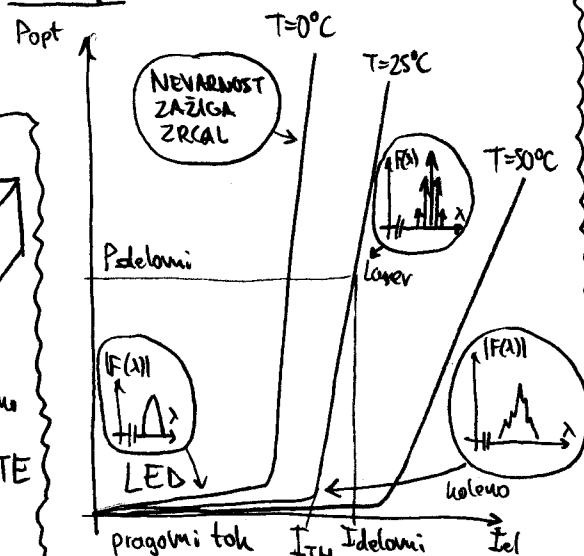 Popt
T=0°C
T=25°C
T=50°C
NEVARNOST
ZAŽIGA
ZRCAL
F(λ)
λ
Pdelovni
Laser
|F(λ)|
λ
LED
|F(λ)|
λ
koleno
TE
pragovni tok
ITH
Idelovni
Iel